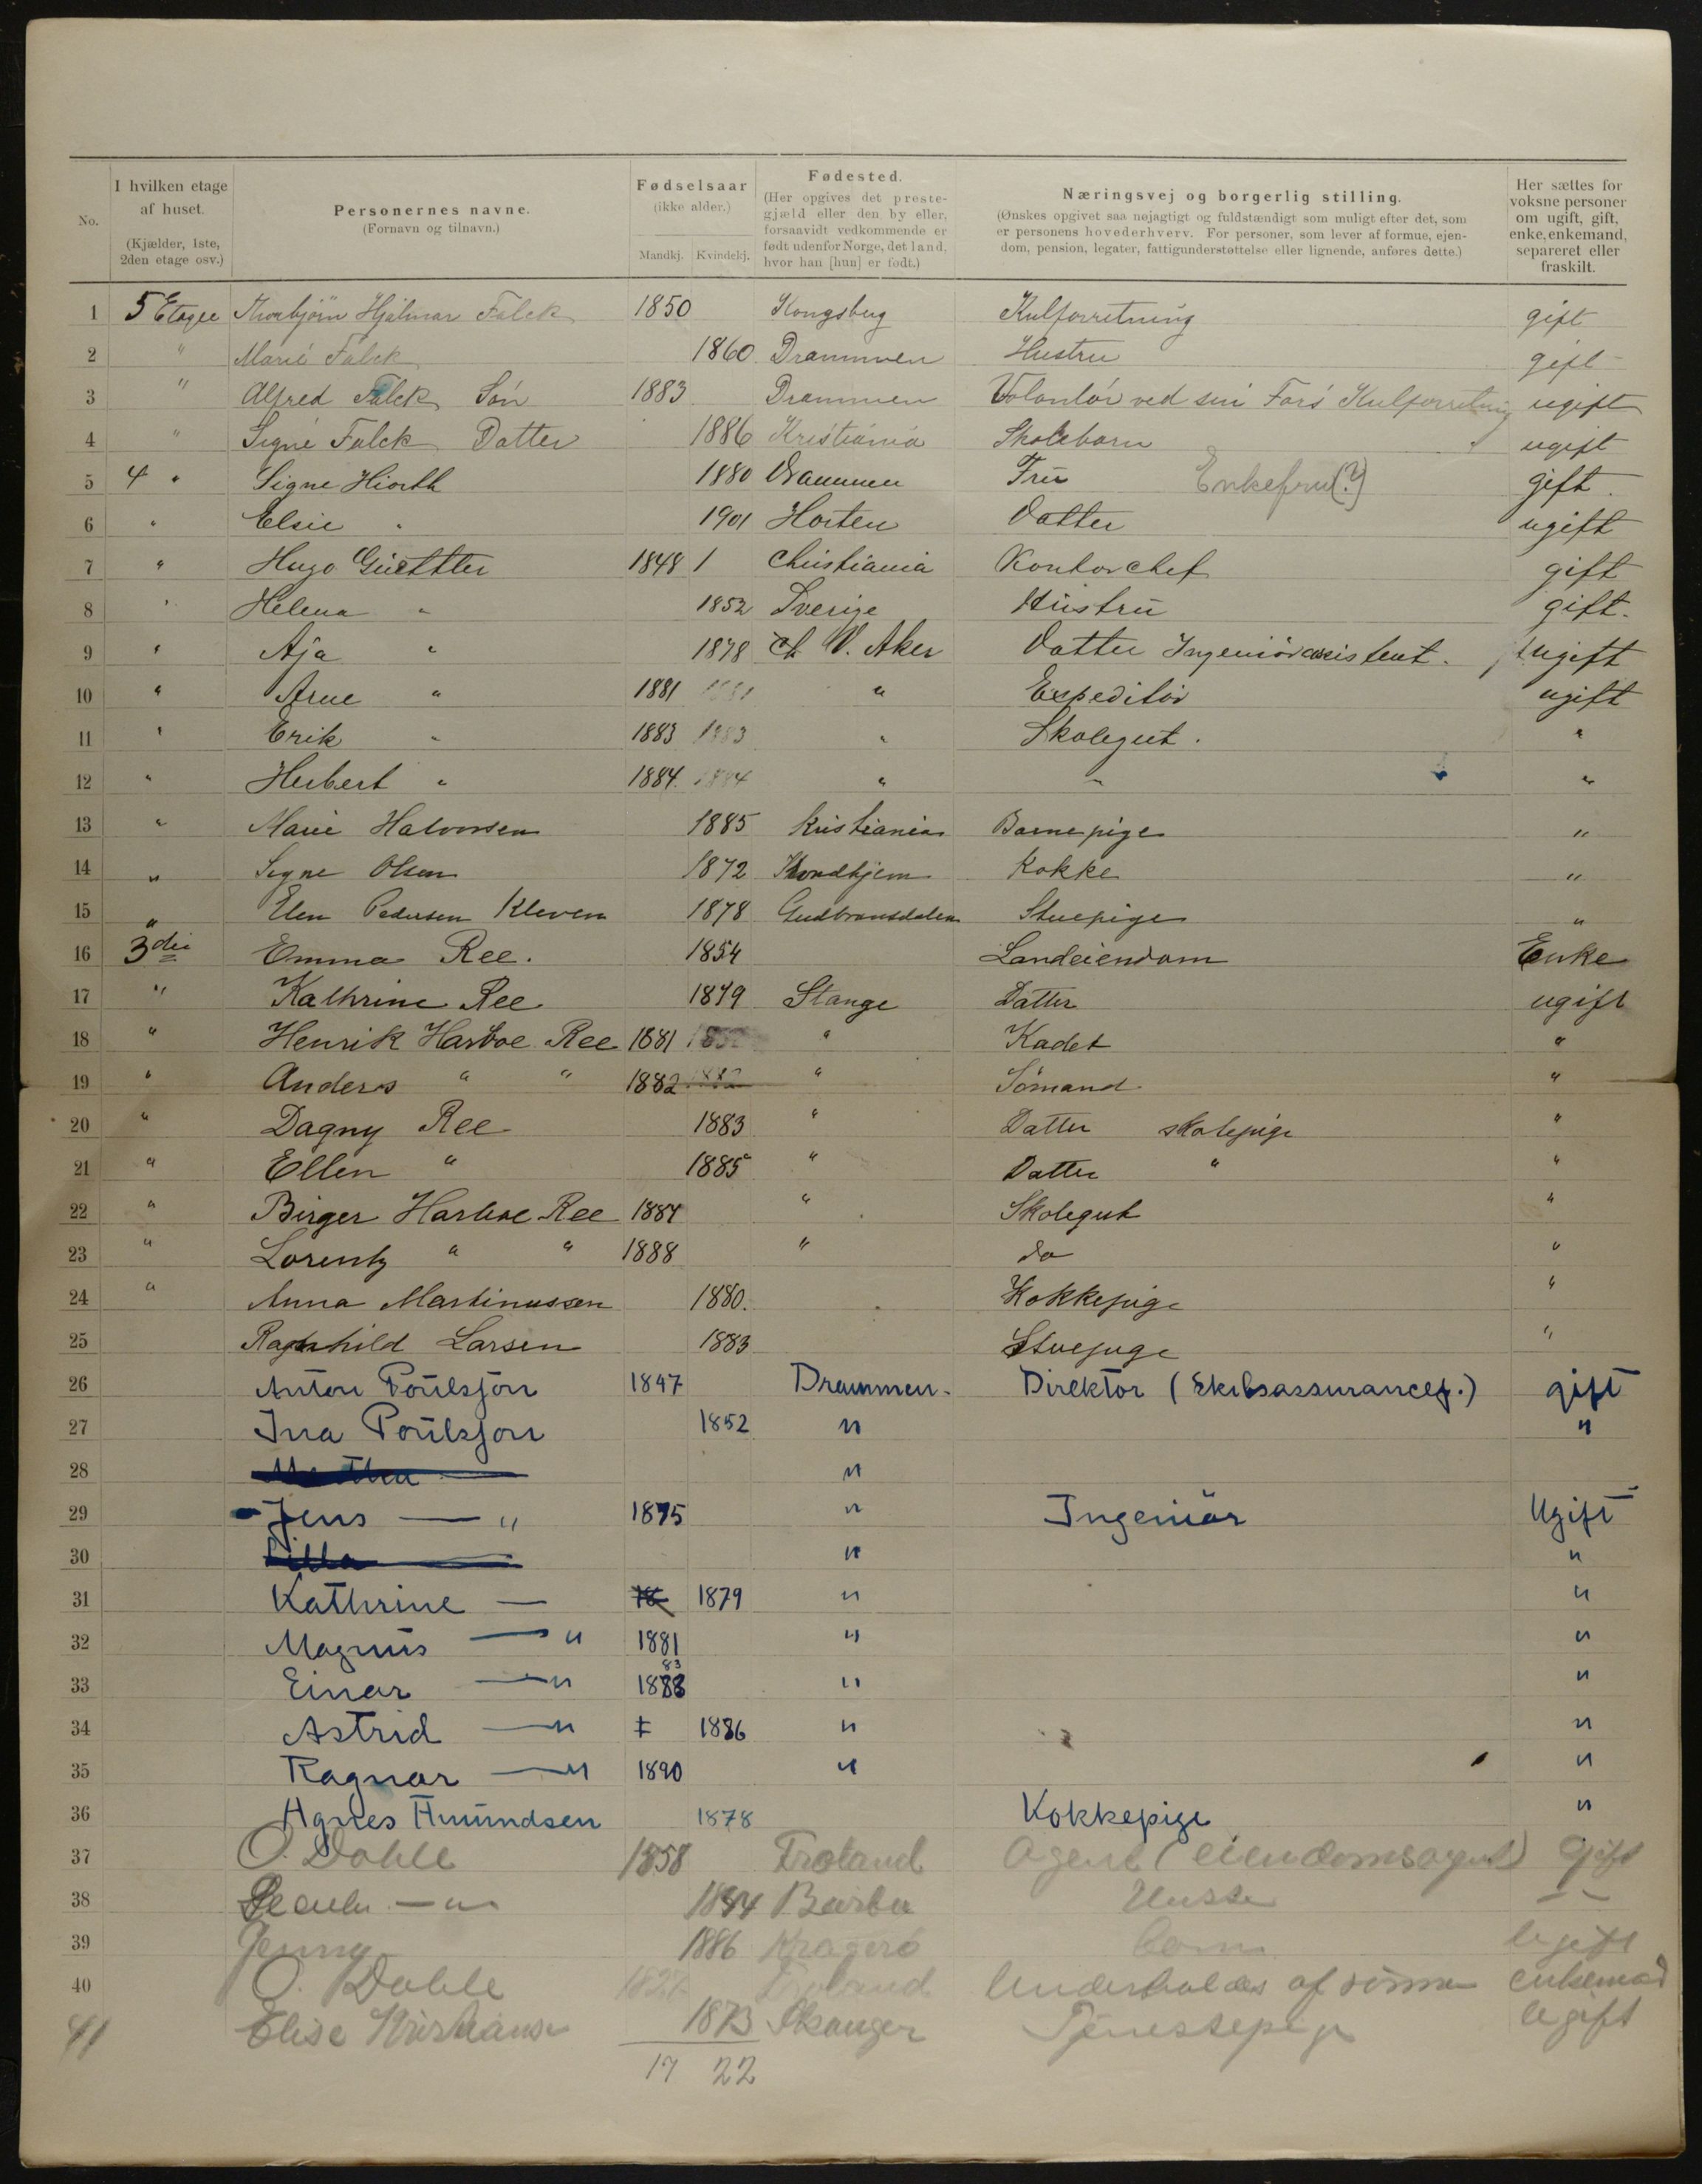 No.
I hvilken etage af huset. (Kjælder, 1ste, 2den etage osv.)
Personernes navne. (Fornavn og tilnavn.)
Fødselsaar (ikke alder.) Mandkj. Kvindekj.
Fødested. (Her opgives det prestegjæld eller den by eller, forsaavidt vedkommende er født udenfor Norge, det land, hvor han [hun] er født.)
Næringsvej og borgerlig stilling. (Ønskes opgivet saa nøjagtigt og fuldstændigt som muligt efter det, som er personens hovederhverv. For personer, som lever af formue, ejendom, pension, legater, fattigunderstøttelse eller lignende, anføres dette.)
Her sættes for voksne personer om ugift, gift, enke, enkemand, separeret eller fraskilt.
1 5 Etage Thorbjørn Hjalmar Falck 1850 Kongsberg Kulforretning gift
2 " Marie Falck 1860. Drammen Hustru gift
3 " Alfred Falck Søn 1883 Drammen Volontör ved sin Fars Kulforretning ugift
4 " Signe Falck Datter 1886 Kristiania Skolebarn ugift
5 4 " Signe Hiorth 1880 Drammen Frü Enkefru(?) gift.
6 " Elsie " 1901 Horten Datter ugift
7 " Hugo 1848 1 Christiania Kontorchef gift
8 " Helena " 1852 Sverige Hüstrü gift.
9 " Aja " 1878 V. Aker Datter Ingeniörassistent. ugift
10 " Arne " 1881 1881 " Expeditör ugift
11 " Erik " 1883 1883 " Skolegut. "
12 " Herbert " 1884. 1884 " " "
13 " Marie Halvorsen 1885 Kristiania Barnepige "
14 " Signe Olsen 1872 Trondhjem Kokke "
15 " Elen Pedersen Kleven 1878 Gudbransdalen Stuepige "
16 3die Emma Ree. 1854 Landeiendom Enke
17 " Kathrine Ree 1879 Stange Datter ugift
18 " Henrik Harboe Ree 1881 " Kadet "
19 " Anders " " 1882 1882 " Sömand "
20 " Dagny Ree 1883 " Datter skolepige "
21 " Ellen " 1885 " Datter " "
22 " Birger Harboe Ree 1887 " Skolegut "
23 " Lorentz " " 1888 " do "
24 " Anna Martinussen 1880. Kokkepige "
25 Ragnhild Larsen 1883 Stuepige "
26 Anton Poulsson 1847 Drammen. Direktør (Skibsassurancef.) gift
27 Ina Poulsson 1852 " "
28 Martha "
29 Jens — " 1875 " Ingeniör Ugift
30 " "
31 Kathrine — 18 1879 " "
32 Magnus — " 1881 " "
33 Einar — " 1883 83 " "
34 Astrid — " 1886 " "
35 Ragnar — " 1890 " "
36 Agnes Amundsen 1878 Kokkepige "
37 O. Dahle 1858 Froland Agent (eiendomsagent) gift
38 — " — Barbu Husse
39 Jenny 1886 Kragerö barn ugift
40 O. Dahle Froland Underholdes af sönnen enkemand
41 Elise Kristianse 1873 Tjenestepige ugift
17 22